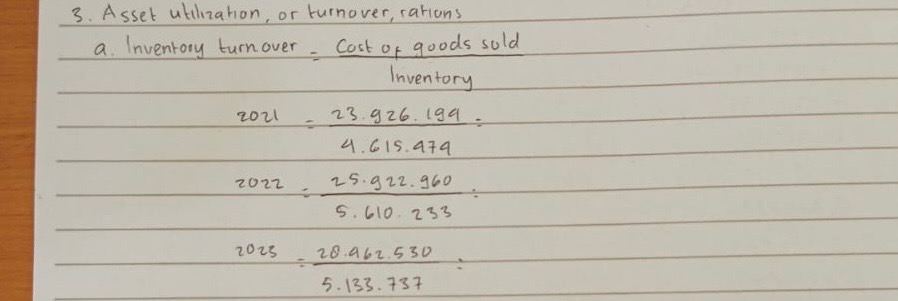 3. Asset utilization, or turnover, rations
a. Inventory turnover = Cost of goods sold
Inventory
2021 = 23.926.199 =
4.615.979
2022 = 25.922.960 =
5.610.233
2023 = 28.962.530 =
5.133.737